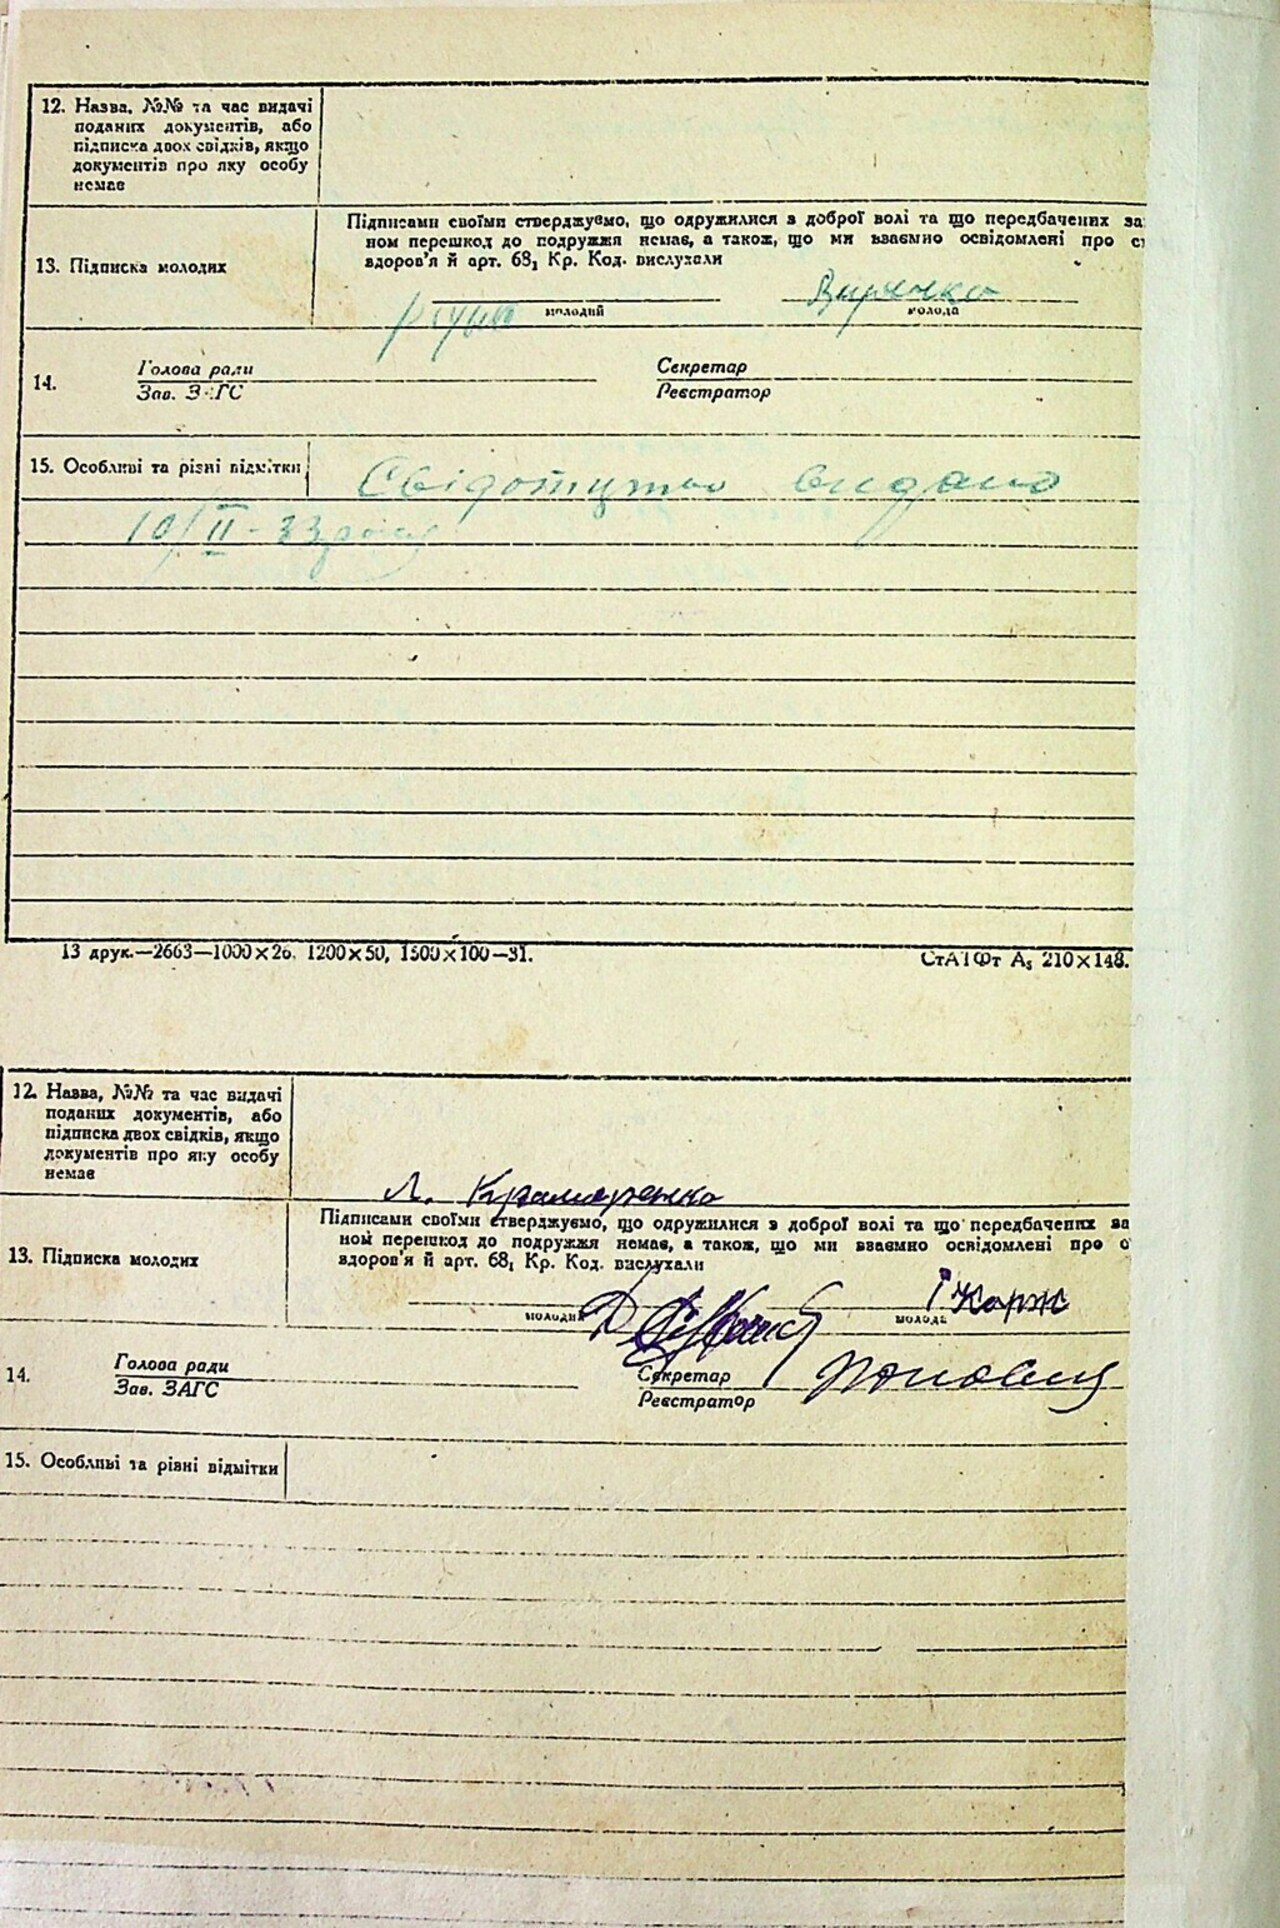 12. Назва, №№ та час видачі
поданих документів, або
підписка двох свідків, якщо
документів про яку особу
немає
13. Підписка молодих
Підписами своїми стверджуємо, що одружилися з доброї волі та що передбачених за
ном перешкод до подружжя немає, а також, що ми взаємно освідомлені про с
здоров'я й арт. 68, Кр. Код. вислухали
молодий
молода
14.
Голова ради
Зав. ЗАГС
Секретар
Реєстратор
15. Особливі та різні відмітки
Свідотцтво видано
10/II-33 року
13 друк.—2663—1000×26. 1200×50, 1500×100—31.
СтАТФт А₅ 210×148.
12. Назва, №№ та час видачі
поданих документів, або
підписка двох свідків, якщо
документів про яку особу
немає
Л. Крамаренко
13. Підписка молодих
Підписами своїми стверджуємо, що одружилися з доброї волі та що передбачених за
ном перешкод до подружжя немає, а також, що ми взаємно освідомлені про с
здоров'я й арт. 68, Кр. Код. вислухали
І Корж
молодий
молода
14.
Голова ради
Зав. ЗАГС
Секретар
Реєстратор
15. Особливі та різні відмітки